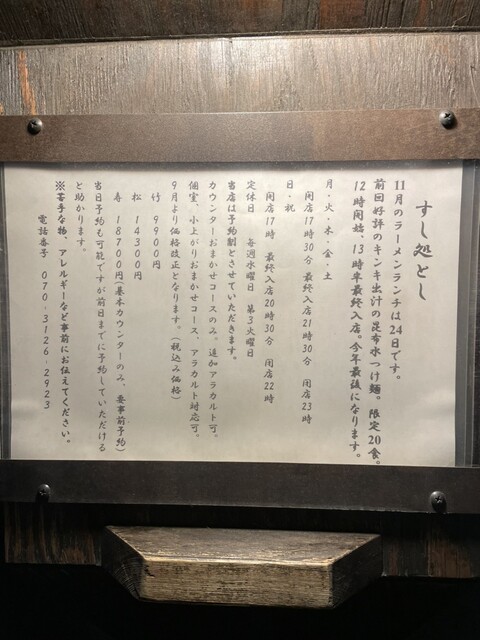 すし処とし
11月のラーメンランチは24日です。
前回好評のキンキ出汁の昆布水つけ麺。限定20食。
12時開始、13時半最終入店。今年最後になります。
月・火・木・金・土
開店17時30分 最終入店21時30分 閉店23時
日・祝
開店17時 最終入店20時30分 閉店22時
定休日 毎週水曜日 第3火曜日
当店は予約制とさせていただきます。
カウンターおまかせコースのみ。追加アラカルト可。
個室、小上がりおまかせコース、アラカルト対応可。
9月より価格改正となります。(税込み価格)
竹 9900円
松 14300円
寿 18700円(基本カウンターのみ、要事前予約)
当日予約も可能ですが前日までに予約していただける
と助かります。
※苦手な物、アレルギーなど事前にお伝えてください。
電話番号 070-3126-2923